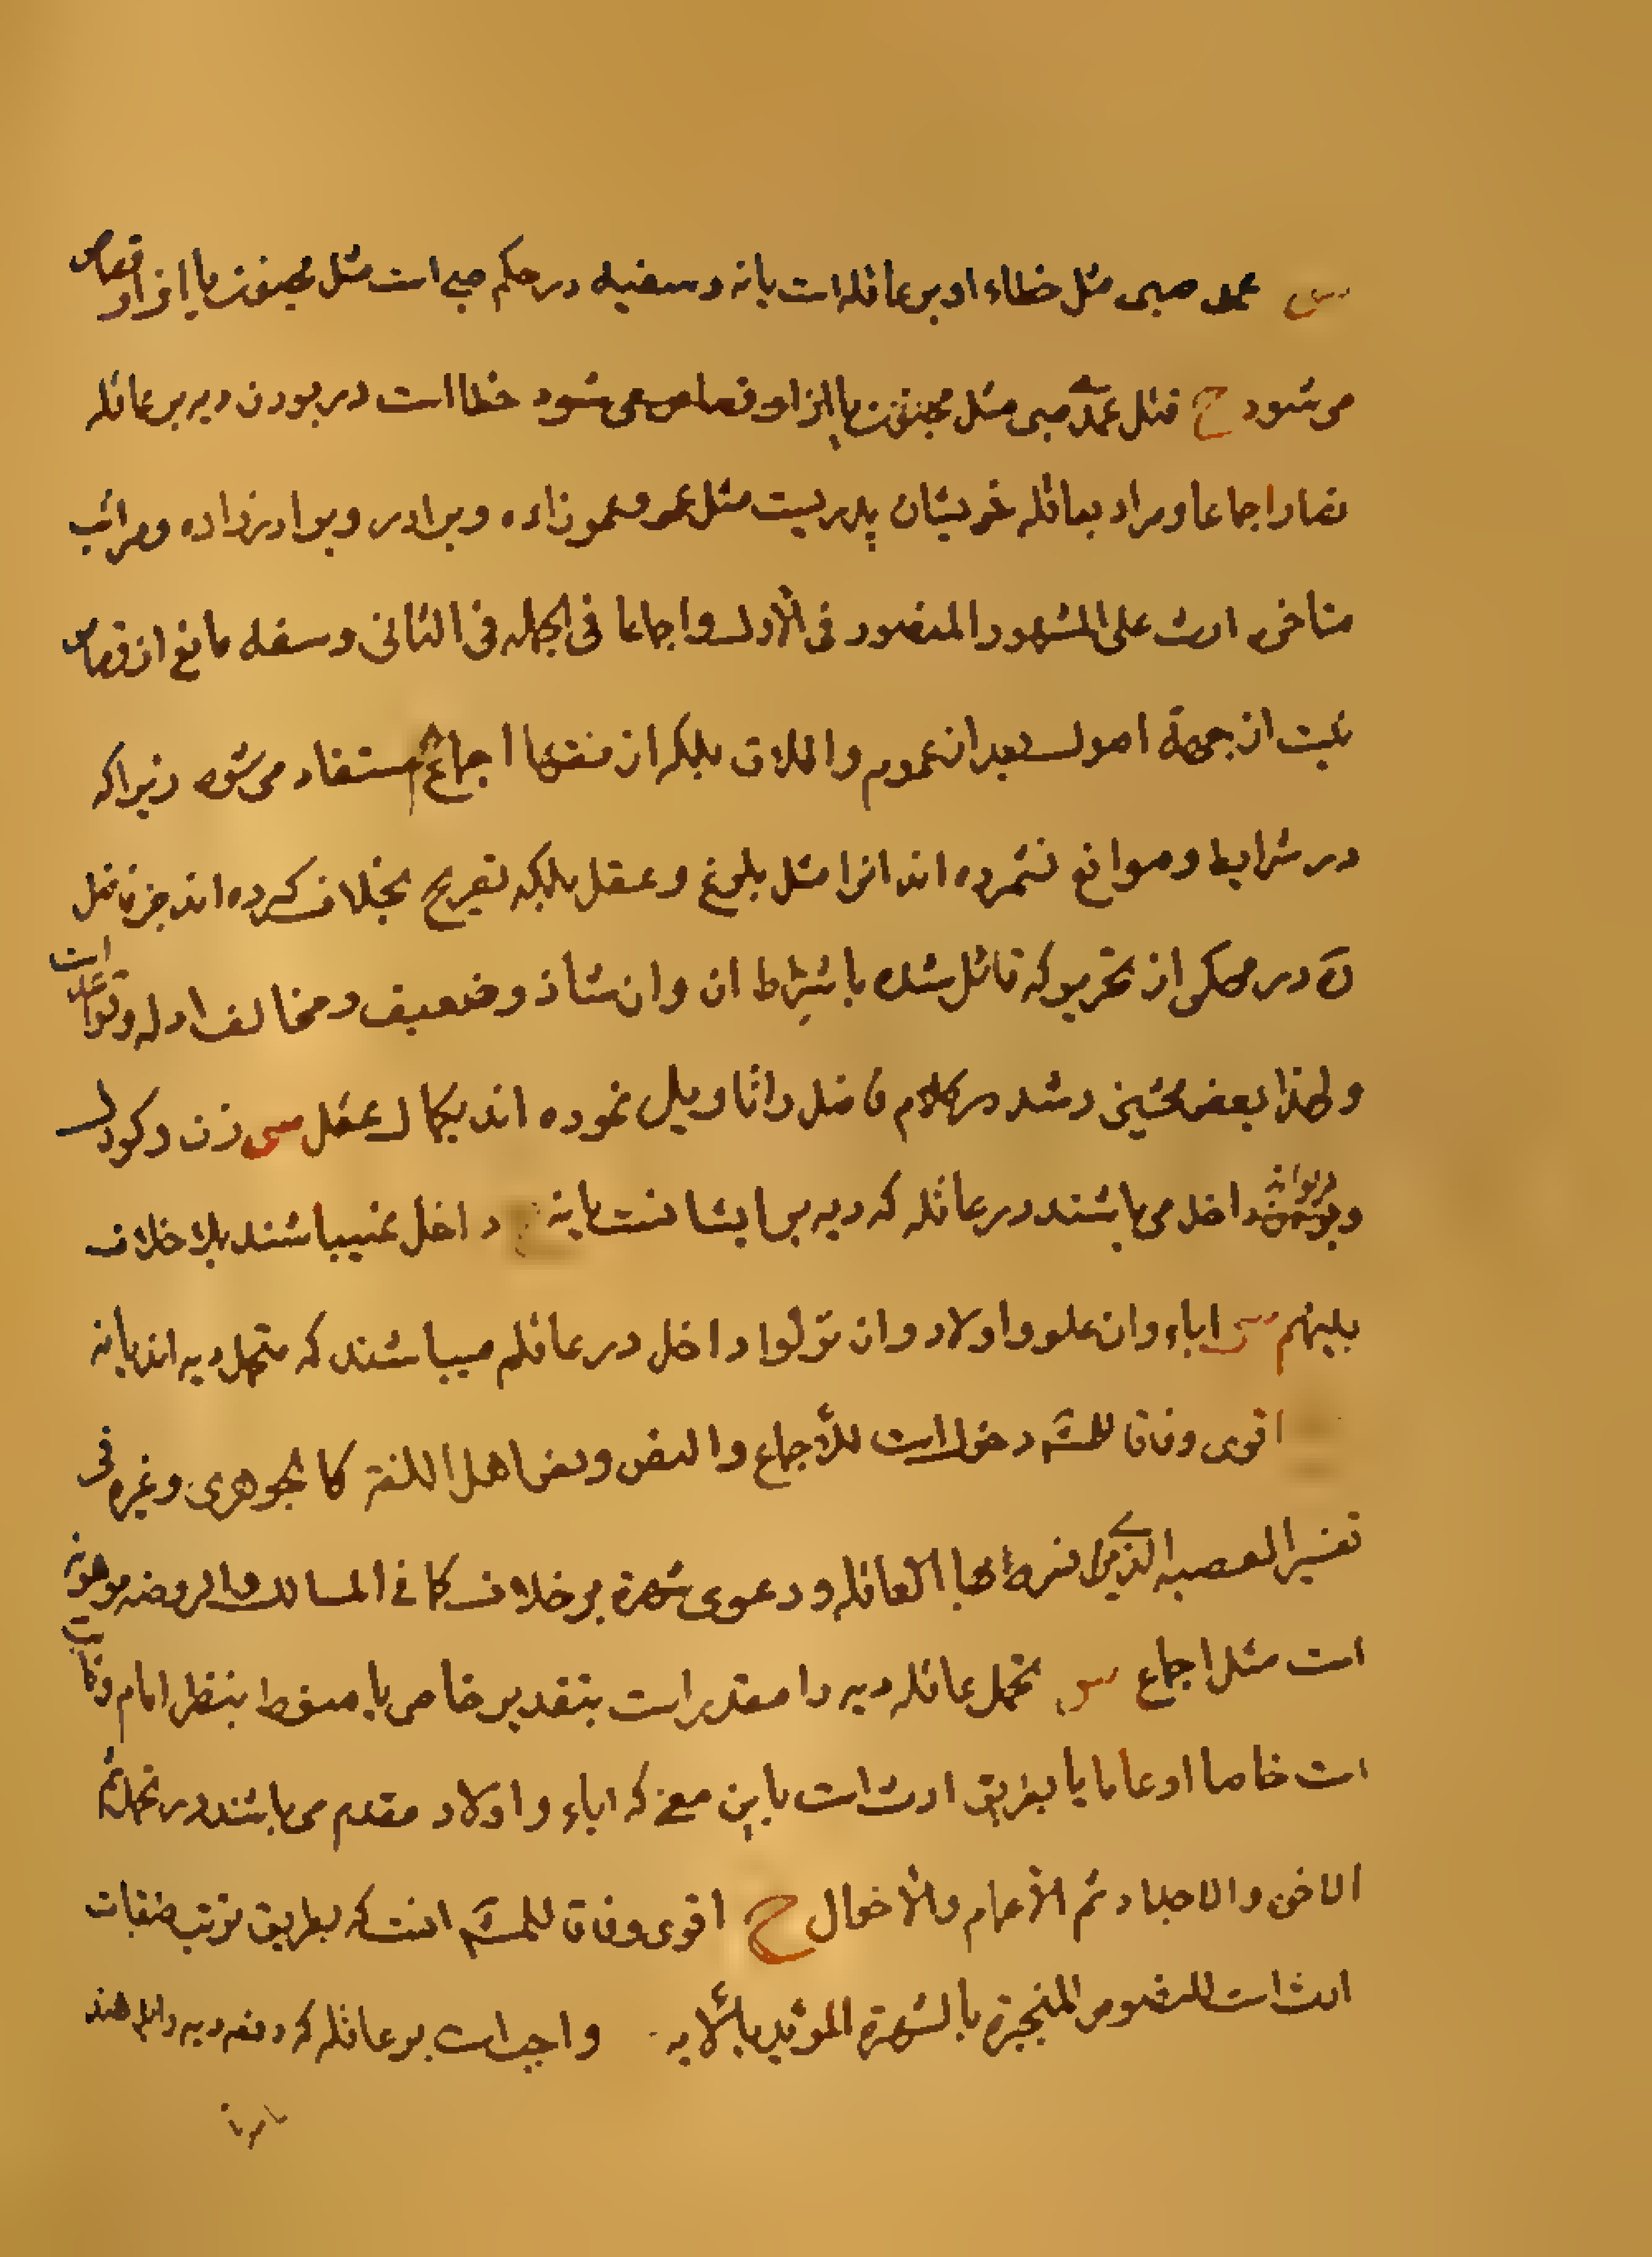 س عمد صبی مثل خطاء او بر عاقله است یا نه و سفیه در حکم صبی است مثل مجنون یا از او قصاص
می شود ج قتل عمدی صبی مثل مجنون یا از او قصاص می شود خطا است در بودن دیه بر عاقله
نصا و اجماعا و مراد بعاقله خویشان پدریست مثل عمو و عمو زاده و برادر و برادر زاده و مراتب
متاخره ارث علی المشهور المنصور فی الأول و اجماعا فی الجمله فی الثانی و سفه مانع از قصاص
نیست از جهة اصول بعد از عموم و اطلاق بلکه از فقها اجماع مستفاد می شود زیرا که
در شرایط و موانع نشمرده اند انرا مثل بلوغ و عقل بلکه تصریح بخلاف کرده اند جز فاضل
ره در محکی از تحریر که قائل شده باشتراط ان و ان شاذ و ضعیف و مخالف ادله و قواعد است
و لهذا بعض محشین رشد در کلام فاضل را تاویل نموده اند بکمال عقل س زن و کودک
و دیوانه داخل می باشند در عاقله که دیه بر ایشانست یا نه ج داخل نمیباشند بلا خلاف
بینهم س اباء و ان علوا و اولاد و ان نزلوا داخل در عاقله میباشند که متحمل دیه اند یا نه
اقوی وفاقا للمش دخول است للأجماع و النص و نص اهل اللغة کالجوهری و غیره فی
تفسیر العصبه الذین فسر بها العاقله و دعوی شهرة بر خلاف کما فی المسالک و الروضه موهونه
است مثل اجماع س تحمل عاقله دیه را مقدر است بتقدیر خاص یا منوط بنظر امام و نایب
است خاصا او عاما یا بطریق ارث است باین معنی که اباء و اولاد مقدم می باشند در تحمل ثم
الاخوه و الاجداد ثم الأعمام و الأخوال ج اقوی وفاقا للمش انست که بطریق ترتب طبقات
ارث است للنصوص المنجبرة بالشهرة المؤید بالأیه واجب است بر عاقله که دفعه دیه را بدهند